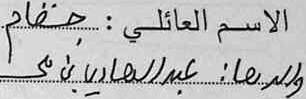 الاسم العائلي : جنفام
والدها: عبد الهادي بن محمد